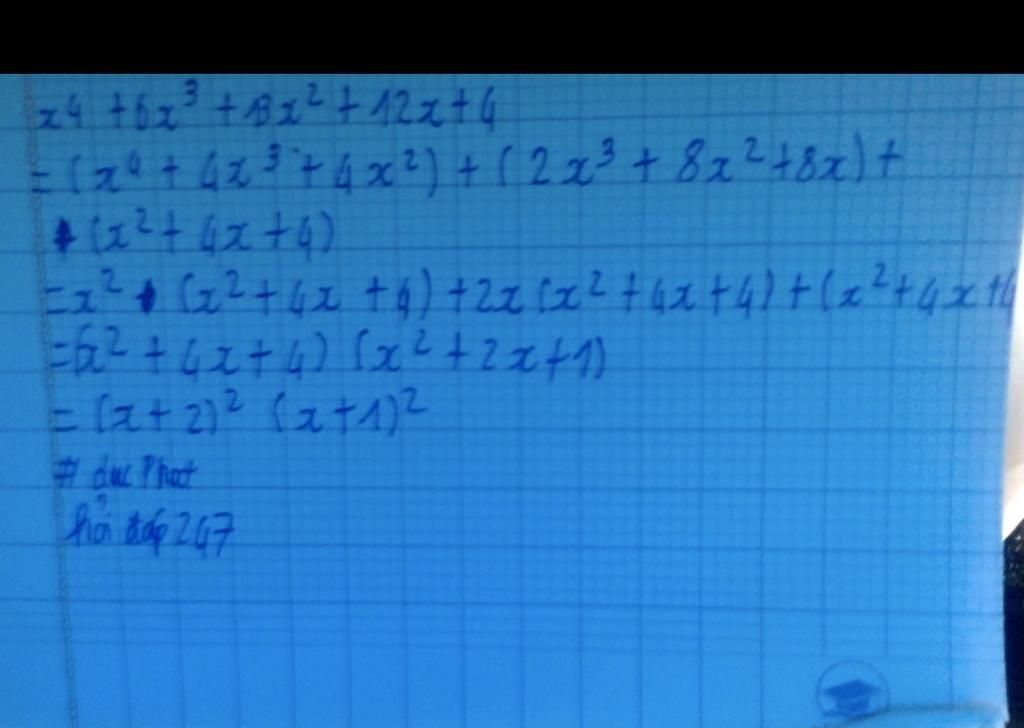 x⁴ + 6x³ + 13x² + 12x + 4
= (x⁴ + 4x³ + 4x²) + (2x³ + 8x² + 8x) +
(x² + 4x + 4)
= x² (x² + 4x + 4) + 2x (x² + 4x + 4) + (x² + 4x + 4
= (x² + 4x + 4) (x² + 2x + 1)
= (x + 2)² (x + 1)²
# duc Phat
hỏi đáp 247